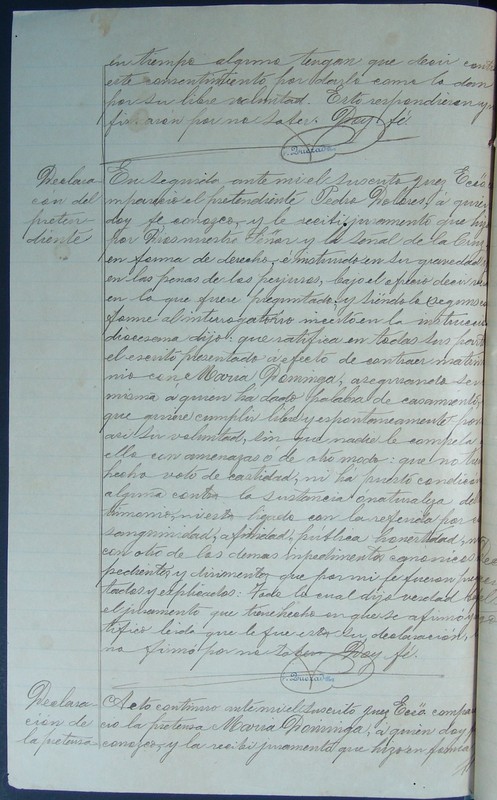 en tiempo alguno tengan que decir contra
este consentimiento por darlo como lo dan
por su libre voluntad. Esto respondieron y
firmaron por no saber. Doy fé
Declara
cion del
preten-
diente
En seguida ante mi el suscrito Juez Ecco
mpareció el pretendiente Pedro Dolores, á quien
doy fe conozco, y le recibí juramento que hizo
por Dios nuestro Señor y la señal de la Cruz
en forma de derecho, é instruido en su gravedad
en las penas de los perjuros, bajo el ofreció decir ver
en lo que fuere preguntado, y siendolo segun
forme al interrogatorio inserto en la instruccion
diocesana dijo: que ratifica en todas sus partes
el escrito presentado á efecto de contraer matrim
nio con Maria Dominga, asegurando ser
misma á quien ha dado palabra de casamiento
que quiere cumplir libre y espontaneamente por
asi su voluntad, sin que nadie le compela
ello con amenazas ó de otro modo: que no tiene
hecho voto de castidad, ni ha puesto condicion
alguna contra la sustancia ó naturaleza del
trimonio, ni está ligado con la referida por
sanguinidad, afinidad, pública honestidad, ni
con otro de los demas impedimentos canonicos
pedientes y dirimentes que por mi le fueron
tados y esplicados: Todo lo cual dijo verdad
el juramento que tiene hecho en que se afirmó y
tificó leida que le fue esta su declaración,
no firmó por no saber. Doy fé.
Declara-
ción de
la pretensa
Acto continuo ante mi el suscrito Juez Ecco. compa
ció la pretensa Maria Dominga, á quien doy f
conozco, y la recibí juramento que hizo en forma